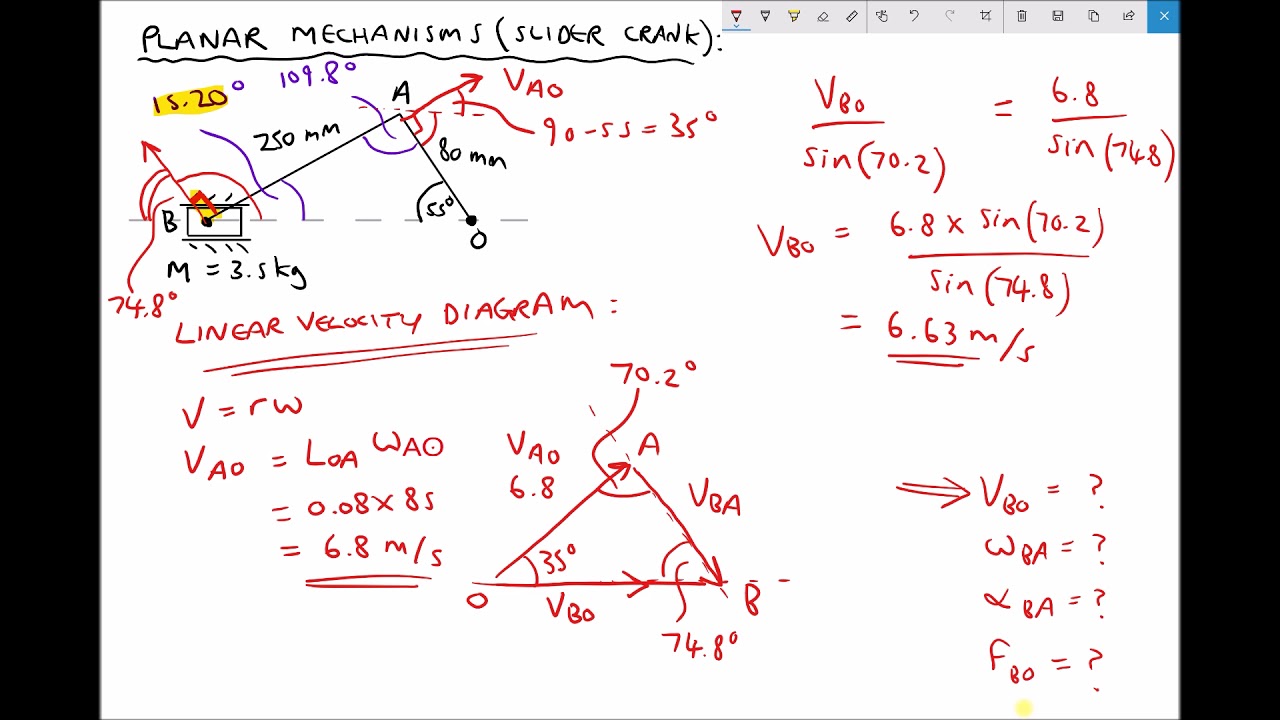 PLANAR MECHANISMS (SLIDER CRANK):
15.20°
109.8°
A
V_AO
90-55 = 35°
250 mm
80 mm
55°
B
O
M = 3.5kg
74.8°
LINEAR VELOCITY DIAGRAM:
V = rω
V_AO = L_OA ω_AO
= 0.08 × 85
= 6.8 m/s
70.2°
V_AO
6.8
A
V_BA
35°
O
V_BO
B
74.8°
V_BO / sin(70.2) = 6.8 / sin(74.8)
V_BO = 6.8 × sin(70.2) / sin(74.8)
= 6.63 m/s
⇒ V_BO = ?
ω_BA = ?
α_BA = ?
F_BO = ?